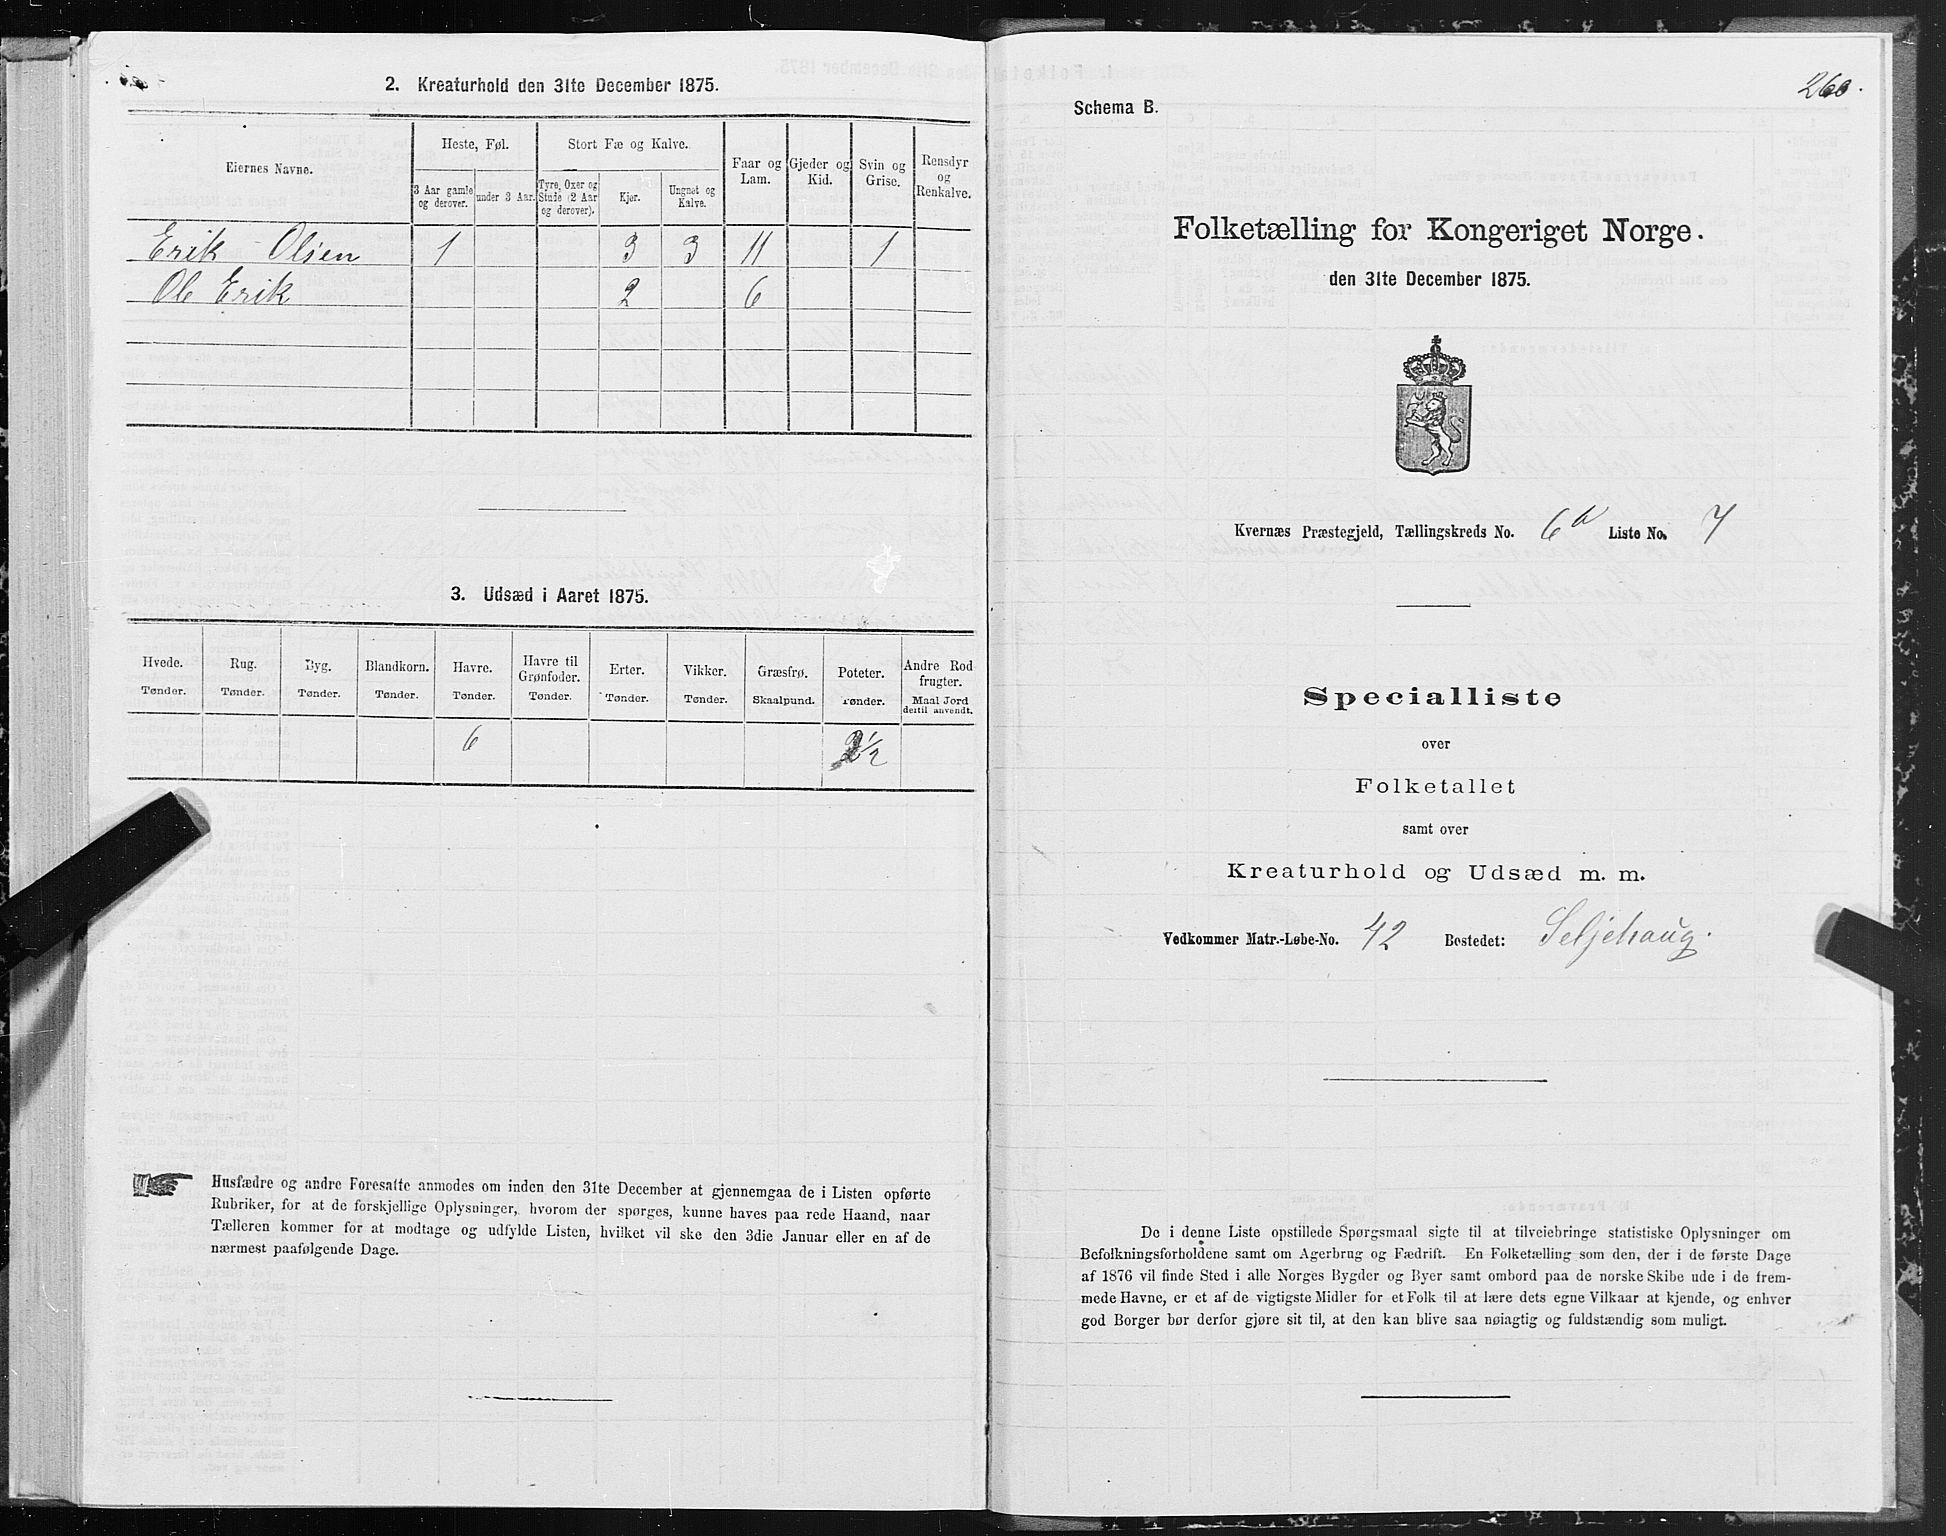 2. Kreaturhold den 31te December 1875.
Eiernes Navne.
Heste, Føl.
Stort Fæ og Kalve.
Faar og Lam.
Gjeder og Kid.
Svin og Grise.
Rensdyr og Renkalve.
3 Aar gamle og derover.
under 3 Aar.
Tyre, Oxer og Stude (2 Aar og derover).
Kjør.
Ungnøt og Kalve.
Erik Olsen 1 3 3 11 1
Ole Erik 2 6
3. Udsæd i Aaret 1875.
Hvede. Rug. Byg. Blandkorn. Havre. Havre til Grønfoder. Erter. Vikker. Græsfrø. Poteter. Andre Rodfrugter.
Tønder. Tønder. Tønder. Tønder. Tønder. Tønder. Tønder. Tønder. Skaalpund. Tønder. Maal Jord dertil anvendt.
6 1/2
Husfædre og andre Foresatte anmodes om inden den 31te December at gjennemgaa de i Listen opførte
Rubriker, for at de forskjellige Oplysninger, hvorom der spørges, kunne haves paa rede Haand, naar
Tælleren kommer for at modtage og udfylde Listen, hvilket vil ske den 3die Januar eller en af de
nærmest paafølgende Dage.
260.
Schema B.
Folketælling for Kongeriget Norge.
den 31te December 1875.
Kvernæs Præstegjeld, Tællingskreds No. 6 Liste No. 7
Specialliste
over
Folketallet
samt over
Kreaturhold og Udsæd m. m.
Vedkommer Matr.-Løbe-No. 42 Bostedet: Seljehaug.
De i denne Liste opstillede Spørgsmaal sigte til at tilveiebringe statistiske Oplysninger om
Befolkningsforholdene samt om Agerbrug og Fædrift. En Folketælling som den, der i de første Dage
af 1876 vil finde Sted i alle Norges Bygder og Byer samt ombord paa de norske Skibe ude i de frem-
mede Havne, er et af de vigtigste Midler for et Folk til at lære dets egne Vilkaar at kjende, og enhver
god Borger bør derfor gjøre sit til, at den kan blive saa nøiagtig og fuldstændig som muligt.